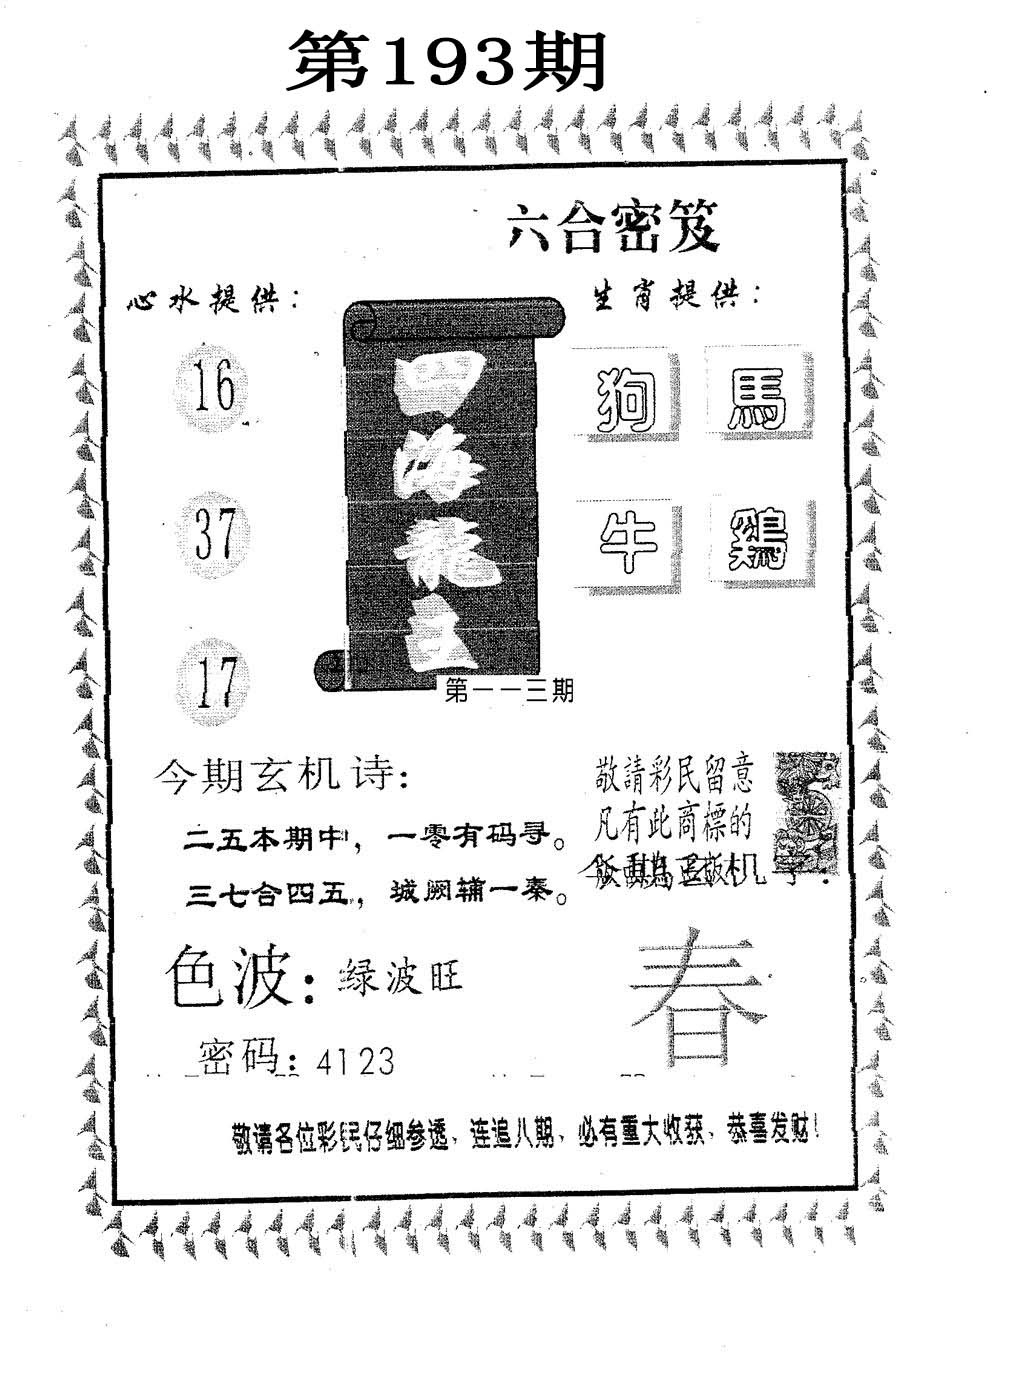 第193期
六合密笈
心水提供：
生肖提供：
16
37
17
四海龍王
狗
馬
牛
鷄
第一一三期
今期玄机诗：
二五本期中，一零有码寻。
三七合四五，城阙辅一秦。
敬請彩民留意
凡有此商標的
色波：绿波旺
春
密码：4123
敬请各位彩民仔细参透、连追八期、必有重大收获、恭喜发财！